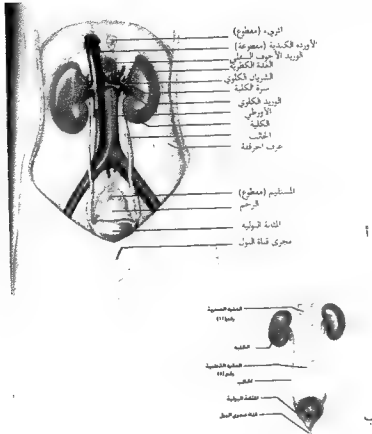 المريء (مقطوع)
الأوردة الكبدية (مقطوعة)
الوريد الأجوف السفلي
الغدة الكظرية
الشريان الكلوي
سرة الكلية
الوريد الكلوي
الأورطي
الكلية
الحالب
عرف الحرقفة
المستقيم (مقطوع)
الرحم
المثانة البولية
مجرى قناة البول
أ
الفقرة الصدرية
رقم (١٢)
الكلية
الفقرة القطنية
الحالب
المثانة البولية
قناة مجرى البول
ب